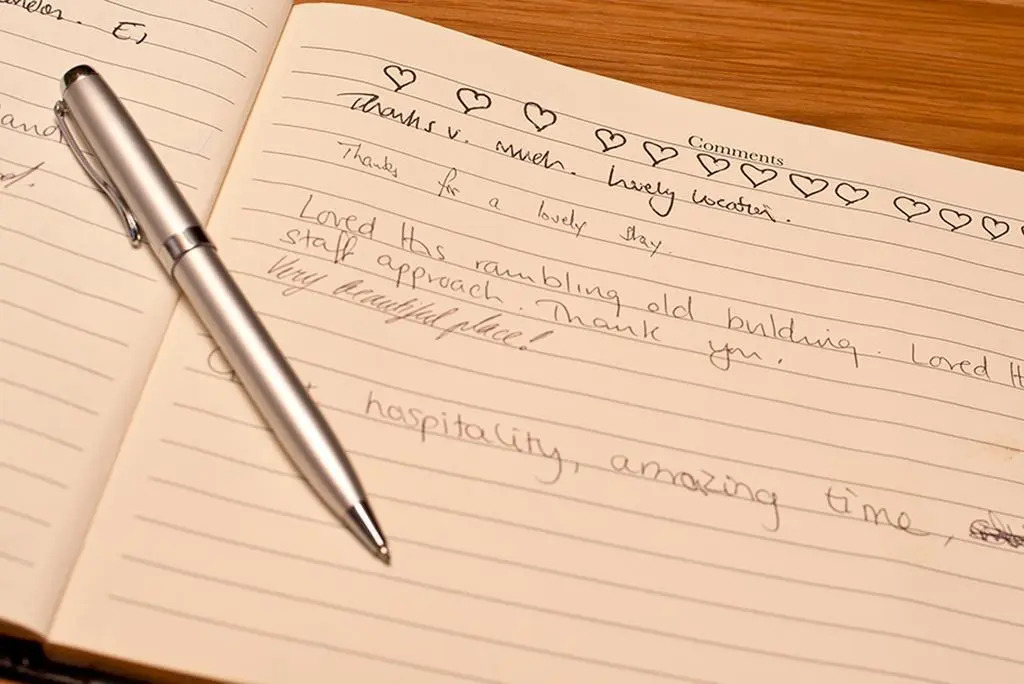 Comments
Thanks v. much. Lovely location.
Thanks for a lovely stay.
Loved this rambling old building. Loved
staff approach. Thank you.
Very beautiful place!
hospitality, amazing time,
E,
and